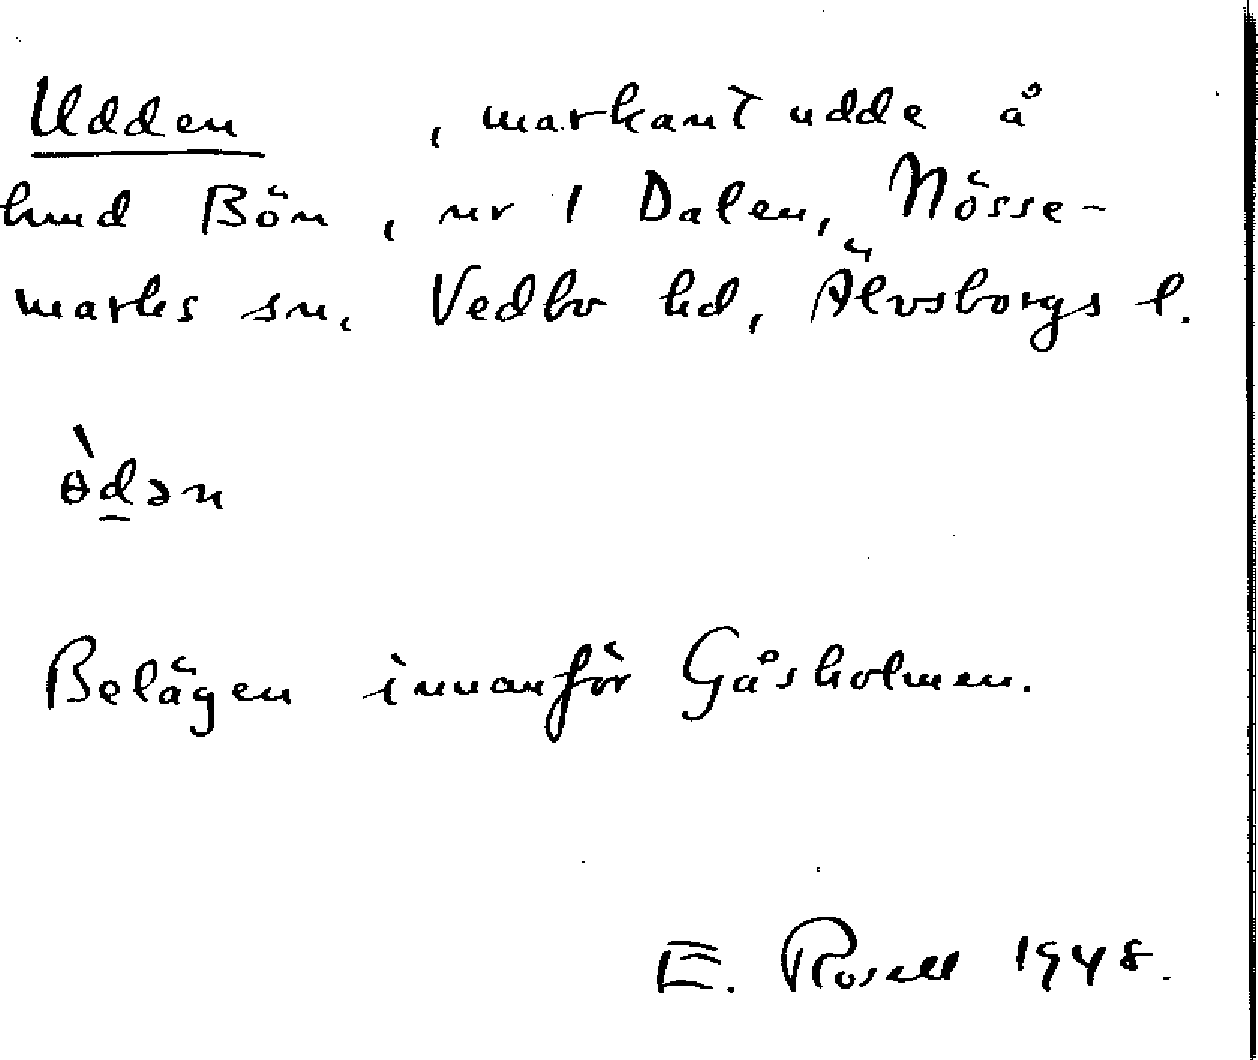 Udden , markant udde å
hmd Bön, nr 1 Dalen, Nösse-
marks sn, Vedbo hd, Älvsborgs l.
ɵ̀dən
Belägen innanför Gåsholmen.
E. Rosell 1948.